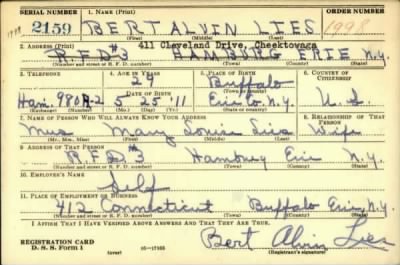 SERIAL NUMBER 1. NAME (Print) ORDER NUMBER
2159 BERT ALVIN LIES 1998
(First) (Middle) (Last)
2. ADDRESS (Print) 411 Cleveland Drive, Cheektowaga
R.F.D #3 HAMBURG ERIE N.Y.
(Number and street or R. F. D. number) (Town) (County) (State)
3. TELEPHONE 4. AGE IN YEARS 5. PLACE OF BIRTH 6. COUNTRY OF CITIZENSHIP
29 Buffalo
DATE OF BIRTH (Town or county)
Ham. 980R-2 5 25 '11 Erie Co. N.Y. U.S.
(Exchange) (Number) (Mo.) (Day) (Yr.) (State or country)
7. NAME OF PERSON WHO WILL ALWAYS KNOW YOUR ADDRESS 8. RELATIONSHIP OF THAT PERSON
Mrs Mary Louise Lies Wife
(Mr., Mrs., Miss) (First) (Middle) (Last)
9. ADDRESS OF THAT PERSON
R.F.D. 3 Hamburg Erie N.Y.
(Number and street or R. F. D. number) (Town) (County) (State)
10. EMPLOYER'S NAME
Self
11. PLACE OF EMPLOYMENT OR BUSINESS
412 Connecticut Buffalo Erie N.Y.
(Number and street or R. F. D. number) (Town) (County) (State)
I AFFIRM THAT I HAVE VERIFIED ABOVE ANSWERS AND THAT THEY ARE TRUE.
REGISTRATION CARD
D. S. S. Form 1 (over) Bert Alvin Lies
(Registrant's signature)